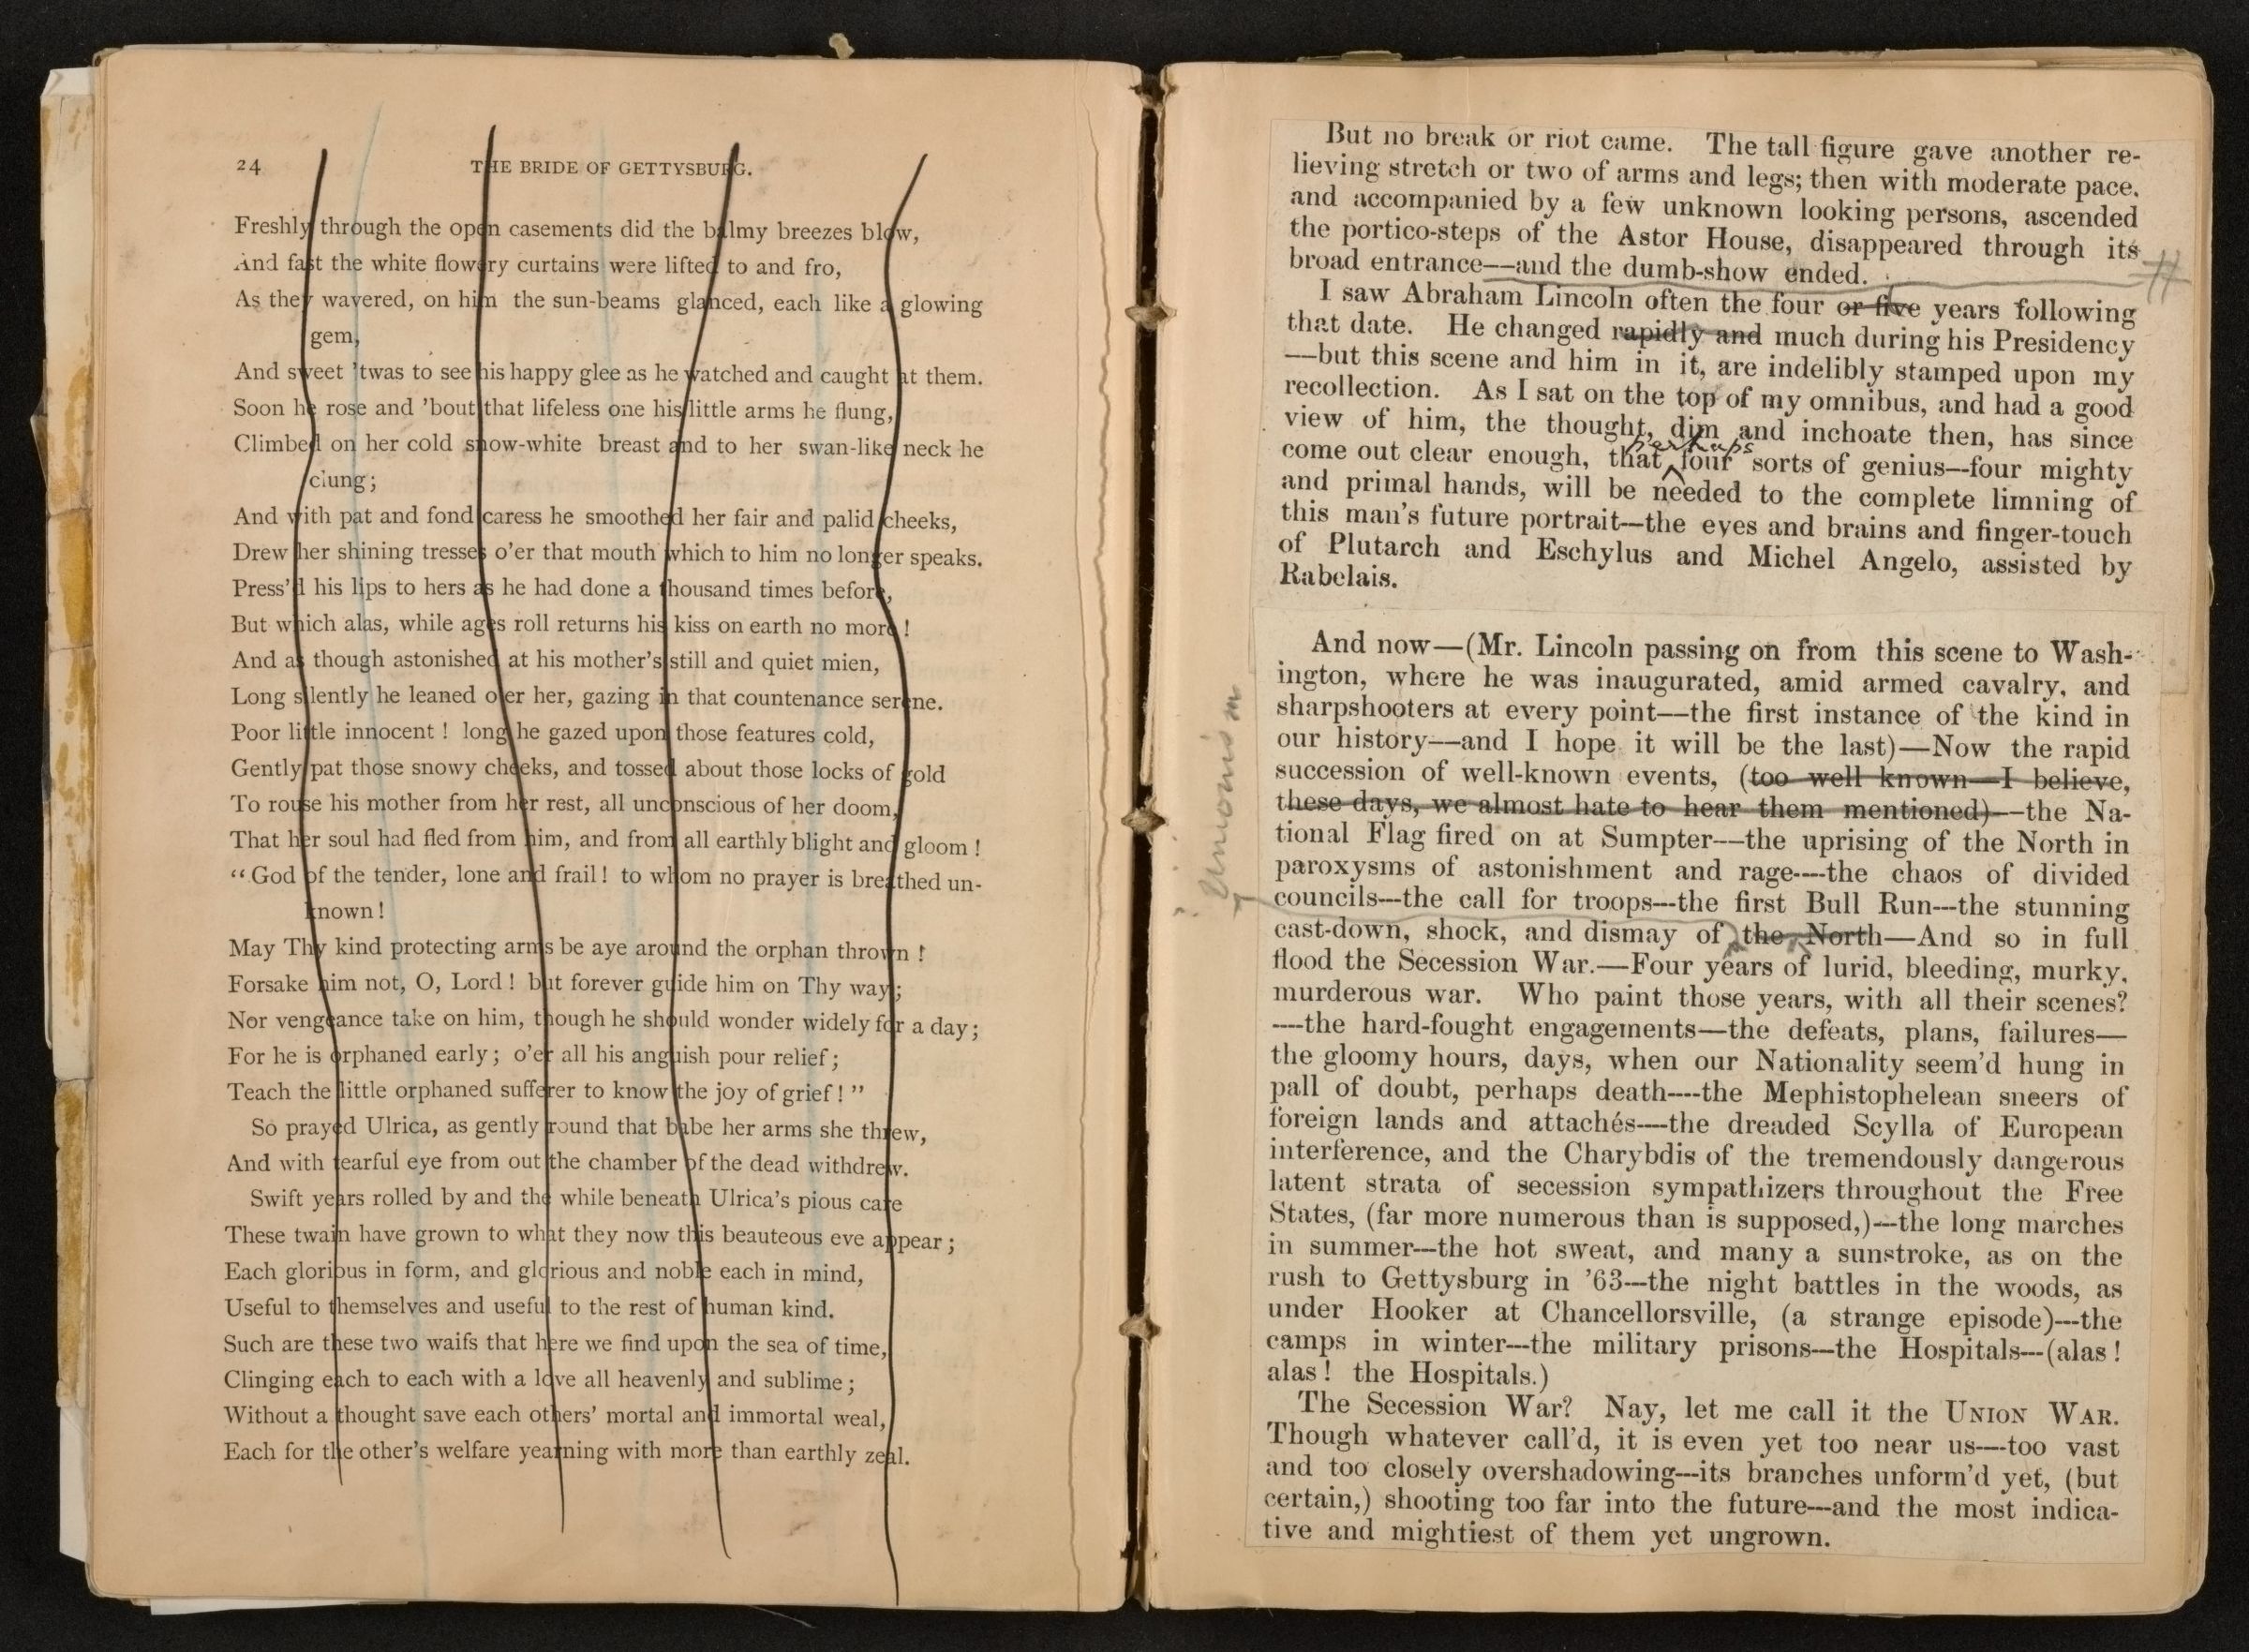 24
THE BRIDE OF GETTYSBURG.
Freshly through the open casements did the balmy breezes blow,
And fast the white flowery curtains were lifted to and fro,
As they wavered, on him the sun-beams glanced, each like a glowing
gem,
And sweet 'twas to see his happy glee as he watched and caught at them.
Soon he rose and 'bout that lifeless one his little arms he flung,
Climbed on her cold snow-white breast and to her swan-like neck he
clung;
And with pat and fond caress he smoothed her fair and palid cheeks,
Drew her shining tresses o'er that mouth which to him no longer speaks.
Press'd his lips to hers as he had done a thousand times before,
But which alas, while ages roll returns his kiss on earth no more !
And as though astonished at his mother's still and quiet mien,
Long silently he leaned o'er her, gazing in that countenance serene.
Poor little innocent ! long he gazed upon those features cold,
Gently pat those snowy cheeks, and tossed about those locks of gold
To rouse his mother from her rest, all unconscious of her doom,
That her soul had fled from him, and from all earthly blight and gloom !
“ God of the tender, lone and frail ! to whom no prayer is breathed un-
known !
May Thy kind protecting arms be aye around the orphan thrown !
Forsake him not, O, Lord ! but forever guide him on Thy way;
Nor vengeance take on him, though he should wonder widely for a day;
For he is orphaned early; o'er all his anguish pour relief;
Teach the little orphaned sufferer to know the joy of grief ! ”
So prayed Ulrica, as gently round that babe her arms she threw,
And with tearful eye from out the chamber of the dead withdrew.
Swift years rolled by and the while beneath Ulrica's pious care
These twain have grown to what they now this beauteous eve appear;
Each glorious in form, and glorious and noble each in mind,
Useful to themselves and useful to the rest of human kind.
Such are these two waifs that here we find upon the sea of time,
Clinging each to each with a love all heavenly and sublime;
Without a thought save each others' mortal and immortal weal,
Each for the other's welfare yearning with more than earthly zeal.
But no break or riot came. The tall figure gave another re-
lieving stretch or two of arms and legs; then with moderate pace,
and accompanied by a few unknown looking persons, ascended
the portico-steps of the Astor House, disappeared through its
broad entrance—and the dumb-show ended.
#
I saw Abraham Lincoln often the four or five years following
that date. He changed rapidly and much during his Presidency
—but this scene and him in it, are indelibly stamped upon my
recollection. As I sat on the top of my omnibus, and had a good
view of him, the thought, dim and inchoate then, has since
perhaps
come out clear enough, that four sorts of genius—four mighty
and primal hands, will be needed to the complete limning of
this man's future portrait—the eyes and brains and finger-touch
of Plutarch and Eschylus and Michel Angelo, assisted by
Rabelais.
And now—(Mr. Lincoln passing on from this scene to Wash-
ington, where he was inaugurated, amid armed cavalry, and
sharpshooters at every point—the first instance of the kind in
our history—and I hope it will be the last)—Now the rapid
succession of well-known events, (too well known—I believe,
these days, we almost hate to hear them mentioned)—the Na-
tional Flag fired on at Sumpter—the uprising of the North in
paroxysms of astonishment and rage—the chaos of divided
councils—the call for troops—the first Bull Run—the stunning
cast-down, shock, and dismay of the North—And so in full
flood the Secession War.—Four years of lurid, bleeding, murky,
murderous war. Who paint those years, with all their scenes?
—the hard-fought engagements—the defeats, plans, failures—
the gloomy hours, days, when our Nationality seem'd hung in
pall of doubt, perhaps death—the Mephistophelean sneers of
foreign lands and attachés—the dreaded Scylla of European
interference, and the Charybdis of the tremendously dangerous
latent strata of secession sympathizers throughout the Free
States, (far more numerous than is supposed,)—the long marches
in summer—the hot sweat, and many a sunstroke, as on the
rush to Gettysburg in '63—the night battles in the woods, as
under Hooker at Chancellorsville, (a strange episode)—the
camps in winter—the military prisons—the Hospitals—(alas !
alas ! the Hospitals.)
The Secession War? Nay, let me call it the UNION WAR.
Though whatever call'd, it is even yet too near us—too vast
and too closely overshadowing—its branches unform'd yet, (but
certain,) shooting too far into the future—and the most indica-
tive and mightiest of them yet ungrown.